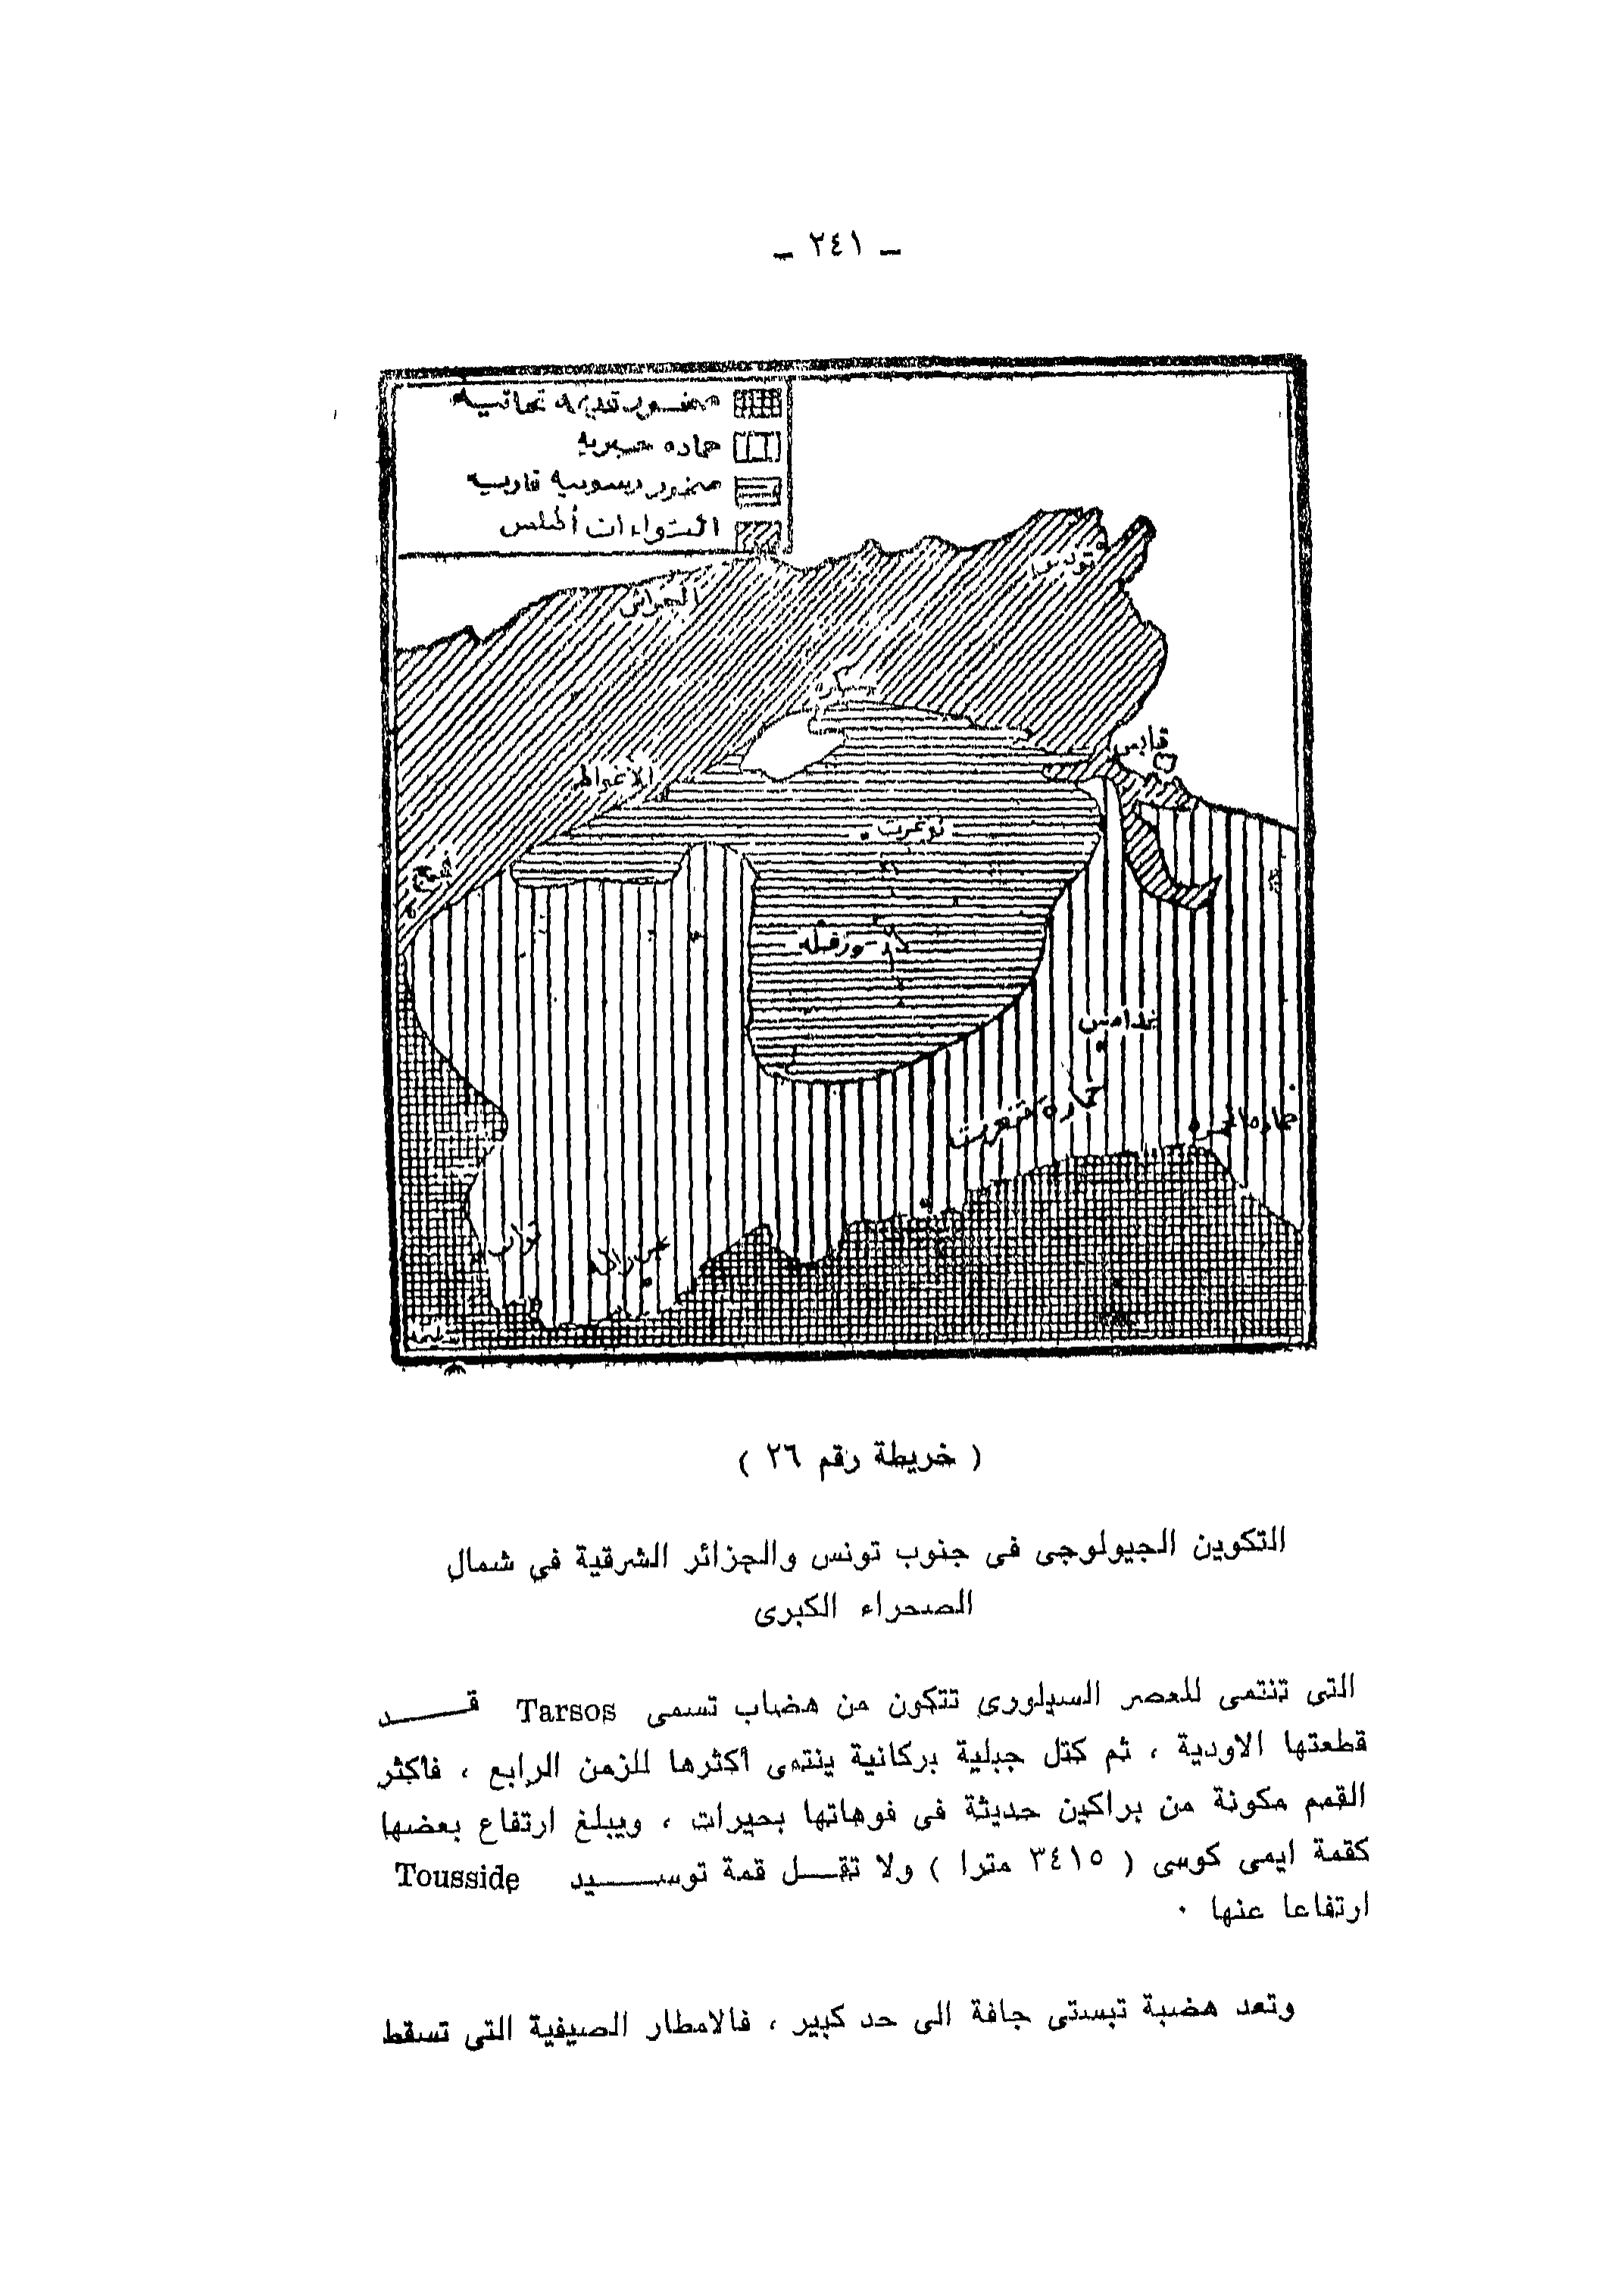 ـ ٢٤١ ـ
صخور قديمة تحاتية
حماده جيرية
صخور رسوبية قارية
التواءات أطلس
تونس
الجزائر
بسكرة
قابس
الاغواط
توجرت
ورقله
غدامس
حماده تنغرت
حماده الحمرا
توات
عين صالح
( خريطة رقم ٢٦ )
التكوين الجيولوجى فى جنوب تونس والجزائر الشرقية فى شمال
الصحراء الكبرى
التى تنتمى للعصر السيلورى تتكون من هضاب تسمى Tarsos قـــد
قطعتها الاودية ، ثم كتل جبلية بركانية ينتمى أكثرها للزمن الرابع ، فأكثر
القمم مكونة من براكين حديثة فى فوهاتها بحيرات ، ويبلغ ارتفاع بعضها
كقمة ايمى كوسى ( ٣٤١٥ مترا ) ولا تقـــل قمة توســـيد Tousside
ارتفاعا عنها ٠
وتعد هضبة تبستى جافة الى حد كبير ، فالامطار الصيفية التى تسقط